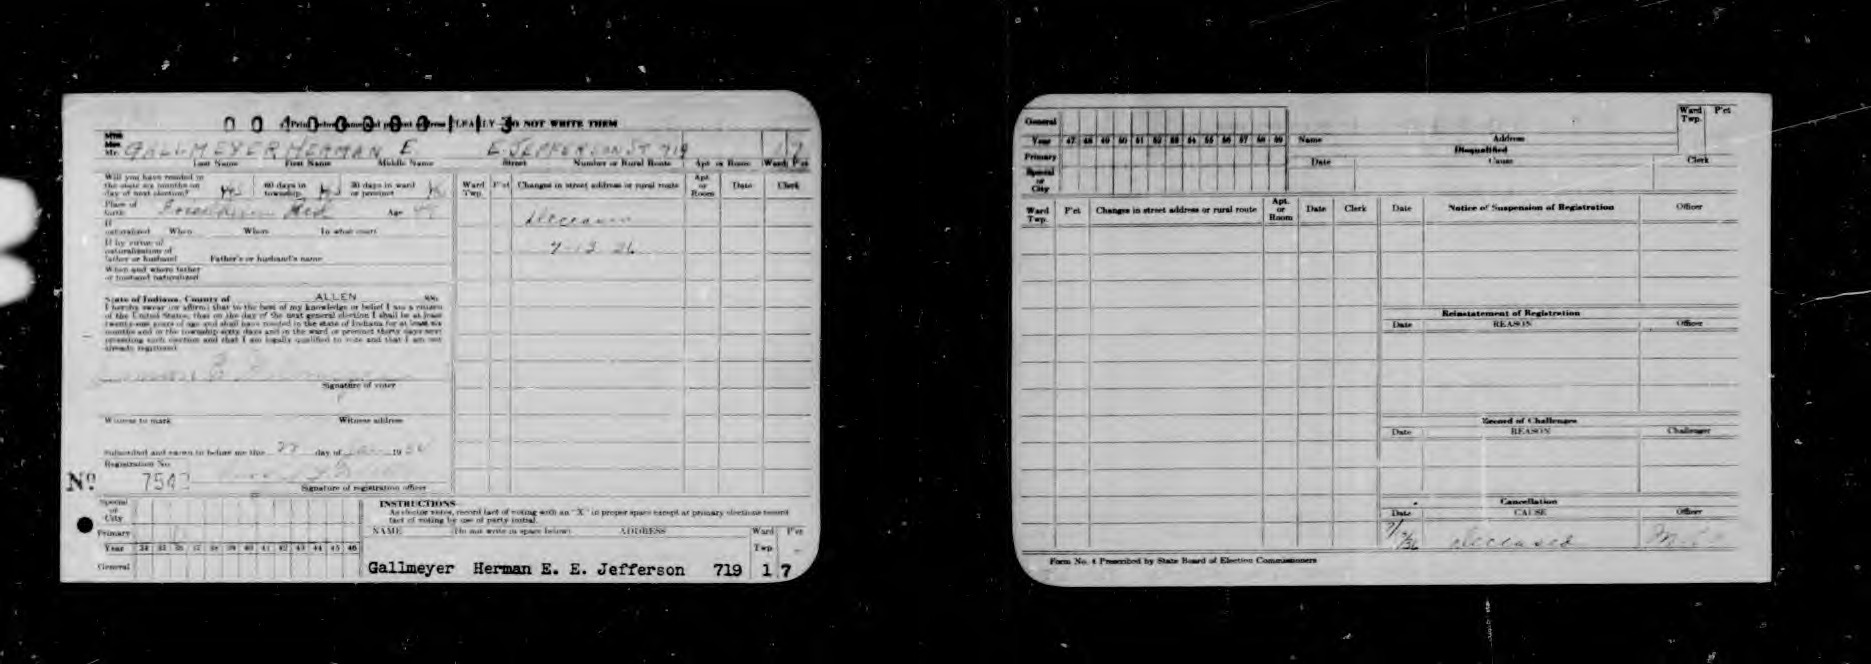 Print Below Name and present Address PLEASE LY DO NOT WRITE THEM
Mrs.
Miss
Mr. GALLMEYER HERMAN E. E. JEFFERSON ST 719 1 7
Last Name First Name Middle Name Street Number or Rural Route Apt. or Room Ward P'ct
Will you have resided in the state six months on day of next election? yes 60 days in township yes 30 days in ward or precinct
Place of birth Ind Age
If naturalized When Where In what court
If by virtue of naturalization of father or husband Father's or husband's name
When and where father or husband naturalized
State of Indiana, County of ALLEN SS:
I hereby swear (or affirm) that to the best of my knowledge or belief I am a citizen
of the United States, that on the day of the next general election I shall be at least
twenty-one years of age and shall have resided in the state of Indiana for at least six
months and in the township sixty days and in the ward or precinct thirty days next
preceding such election and that I am legally qualified to vote and that I am not
already registered.
Signature of voter
Witness to mark Witness address
Subscribed and sworn to before me this 27 day of 19
Registration No.
Nº 7542
Signature of registration officer
Ward Twp. P'ct Changes in street address or rural route Apt. or Room Date Clerk
Deceased
7-13 36
Special or City
Primary
Year 34 35 36 37 38 39 40 41 42 43 44 45 46
General
INSTRUCTIONS
As elector votes, record fact of voting with an "X" in proper space except at primary elections record
fact of voting by use of party initial.
NAME (Do not write in space below) ADDRESS Ward P'ct
Twp.
Gallmeyer Herman E. E. Jefferson 719 1 7
General
Year 47 48 49 50 51 52 53 54 55 56 57 58 59
Primary
Special or City
Name Address
Ward Twp. P'ct
Disqualified
Date Cause Clerk
Ward Twp. P'ct Changes in street address or rural route Apt. or Room Date Clerk
Date Notice of Suspension of Registration Officer
Reinstatement of Registration
Date REASON Officer
Record of Challenges
Date REASON Challenger
Cancellation
Date CAUSE Officer
deceased
Form No. 4 Prescribed by State Board of Election Commissioners